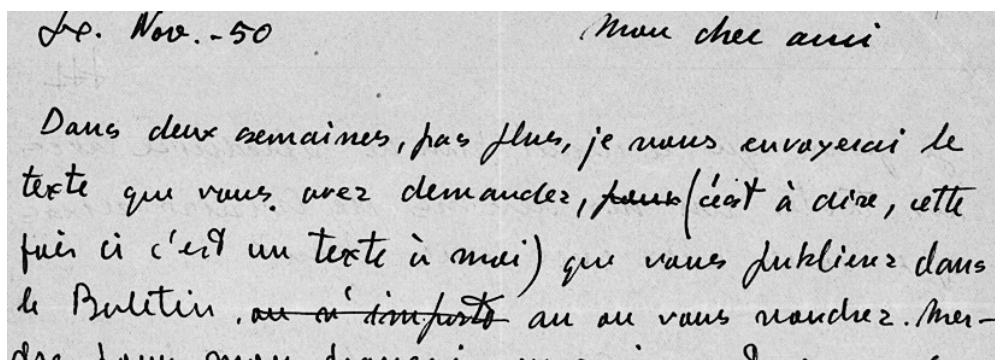 Lx. Nov. - 50 Mon cher ami
Dans deux semaines, pas plus, je vous envoyerai le
texte que vous avez demandez, pour (c'est à dire, cette
fois ci c'est un texte à moi) que vous publierez dans
le Buletin, ou n'importe au ou vous voudrez. Mer-
dre pour mon français